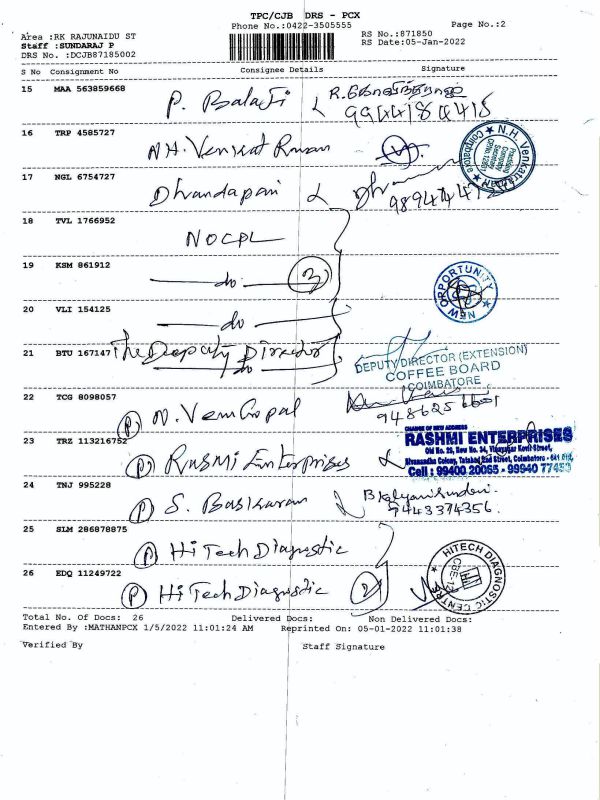 TPC/CJB DRS - PCX
Phone No.:0422-3505555
Page No.:2
Area :RK RAJUNAIDU ST
RS No.:871850
Staff :SUNDARAJ P
RS Date:05-Jan-2022
DRS No. :DCJB87185002
S No Consignment No Consignee Details Signature
15 MAA 563859668 P. Balaji
16 TRP 4585727 N.H. Venkat Raman
N.H. Venkatraman
Practising
Company
Secretary
17 NGL 6754727 Dhandapani
18 TVL 1766952 NOCPL
19 KSM 861912 do 3
NEW OPPORTUNITY
20 VLI 154125 do
21 BTU 167147 The Deputy Director
do
DEPUTY DIRECTOR (EXTENSION)
COFFEE BOARD
COIMBATORE
22 TCG 8098057 P N. Venu Gopal
23 TRZ 113216752 P Rasmi Enterprises
CHANGE OF NEW ADDRESS
RASHMI ENTERPRISES
Cell : 99400 20065 - 99940
24 TNJ 995228 P S. Baskaran
9443374356.
25 SLM 286878875 P Hi Tech Diagnostic
26 EDQ 11249722 P Hi Tech Diagnostic 2
HITECH DIAGNOSTIC CENTRE
Total No. Of Docs: 26 Delivered Docs: Non Delivered Docs:
Entered By :MATHANPCX 1/5/2022 11:01:24 AM Reprinted On: 05-01-2022 11:01:38
Verified By Staff Signature